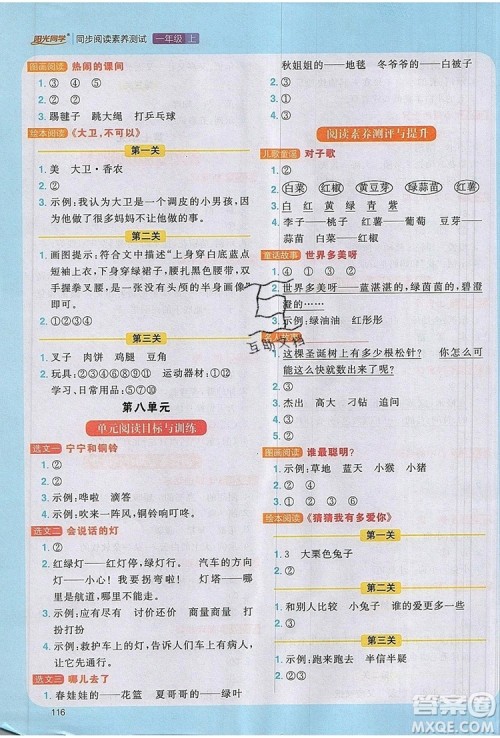 阳光同学 同步阅读素养测试 一年级 上
图画阅读 热闹的课间
1. ③ ④ ⑤
2. ②
3. 踢毽子 跳大绳 打乒乓球
绘本阅读 《大卫,不可以》
第一关
1. 美 大卫·香农
2. ②
3. 示例:我认为大卫是一个调皮的小男孩,因为
第二关
1. 画图提示:符合文中描述“上身穿白底蓝点
短衫,下身穿绿裙子,腰扎黑色围腰,双
2. ①③④
第三关
1. 叉子 肉饼 鸡腿 豆角
2. 玩具:①②③④⑥ 运动器材:③⑧⑨
学习、日常用品:⑤⑦⑩
第八单元
单元阅读目标与训练
选文一 宁宁和铜铃
1. ②
2. ②
3. 示例:哗啦 滴答
4. 示例:吹来一阵风,铜铃响叮咚。
选文二 会说话的灯
1. 红绿灯:红灯停,绿灯行。 汽车的方向
灯:小心!我要拐弯啦! 灯塔:……
2. ②
3. 示例:应该 应对 讨论 商量商量
4. 示例:救护车上的灯,告诉人们车上有病
选文三 哪儿去了
1. 春娃娃的——花篮 夏哥哥的——绿叶
116
秋姐姐的——地毯 冬爷爷的——白被子
2. ②
阅读素养测评与提升
儿歌童谣 对子歌
1. ②
2. 白菜 红椒 黄豆芽 绿蒜苗 红萝卜
3. 白——黑 黄 绿 青 紫
4. 李子——桃子 红薯——葡萄 豆芽——
蒜苗 菠菜——红椒
童话故事 世界多美呀
1. ④ ① ③ ②
2. 世界多美呀——蓝湛湛的,绿茵茵的,碧澄
澄的……
3. ②
4. 示例:绿油油 红彤彤
名人故事
1. 这棵圣诞树上有多少根松针? 你怎么可
能这么快就数完了呢?
2. ②
3. 杰出 聪明
图画阅读 谁最聪明?
1. 示例:草地 蓝天 小猴 小猪
2. ③ ① ②
3. ③ ④
绘本阅读 《猜猜我有多爱你》
第一关
1. 3 大栗色兔子
2. ②
第二关
1. 和别人比较 小兔子 大兔子
2. ②
第三关
1. ②
2. ②
3. 示例:半信半疑